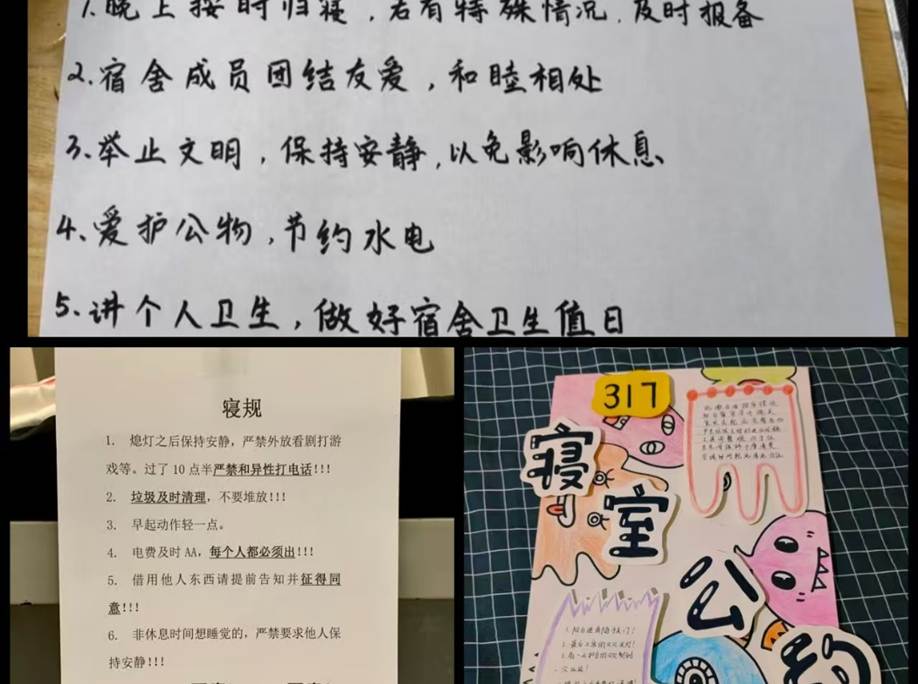 1.晚上按时归寝，若有特殊情况，及时报备
2.宿舍成员团结友爱，和睦相处
3、举止文明，保持安静，以免影响休息、
4、爱护公物，节约水电
5、讲个人卫生，做好宿舍卫生值日
寝规
1. 熄灯之后保持安静，严禁外放看剧打游
戏等。过了10点半严禁和异性打电话!!!
2. 垃圾及时清理，不要堆放!!!
3. 早起动作轻一点。
4. 电费及时AA，每个人都必须出!!!
5. 借用他人东西请提前告知并征得同
意!!!
6. 非休息时间想睡觉的，严禁要求他人保
持安静!!!
317
寝
室
公
约